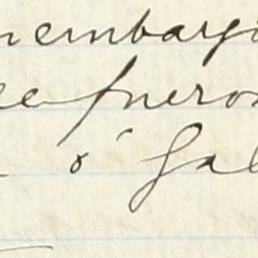 nembargo
ee fueron
ó Gal